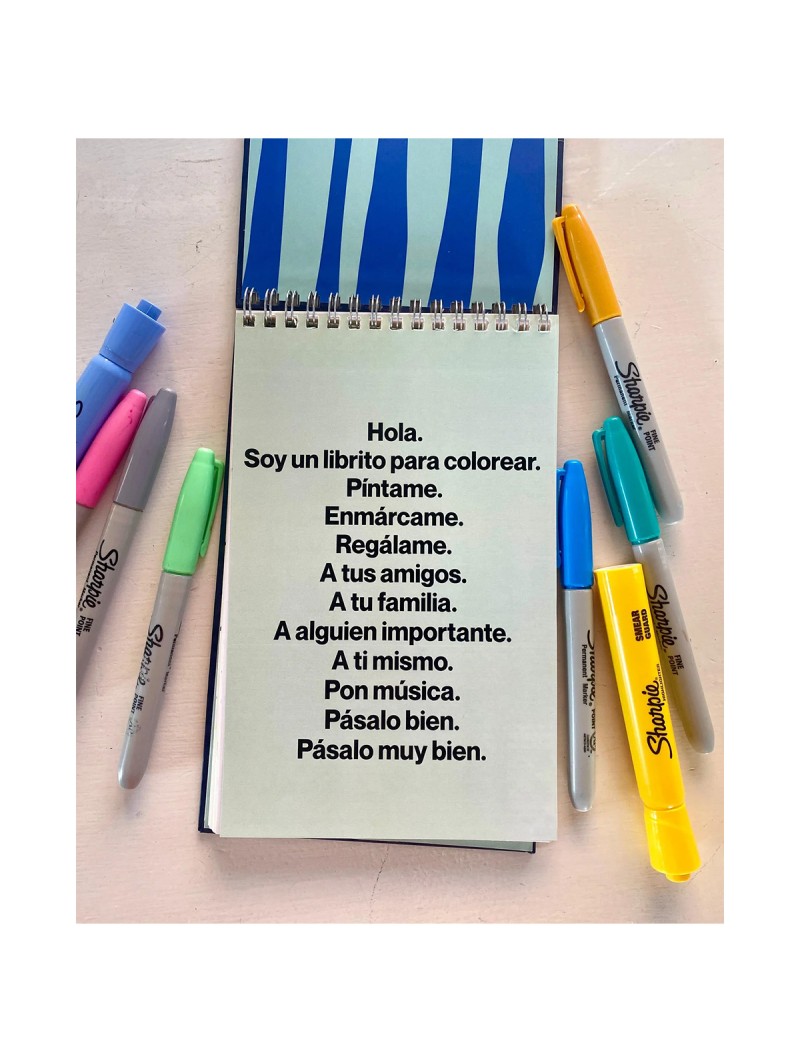 Hola.
Soy un librito para colorear.
Píntame.
Enmárcame.
Regálame.
A tus amigos.
A tu familia.
A alguien importante.
A ti mismo.
Pon música.
Pásalo bien.
Pásalo muy bien.
Sharpie
FINE
POINT
Sharpie
FINE
POINT
Sharpie
Permanent
FINE
POINT
Permanent Marker
Sharpie
FINE
POINT
SMEAR
GUARD
Sharpie